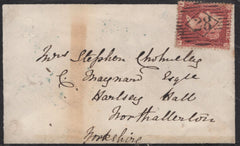 Mrs Stephen Cholmeley
C. Maynard Esqre
Harlsey Hall
Northallerton
Yorkshire